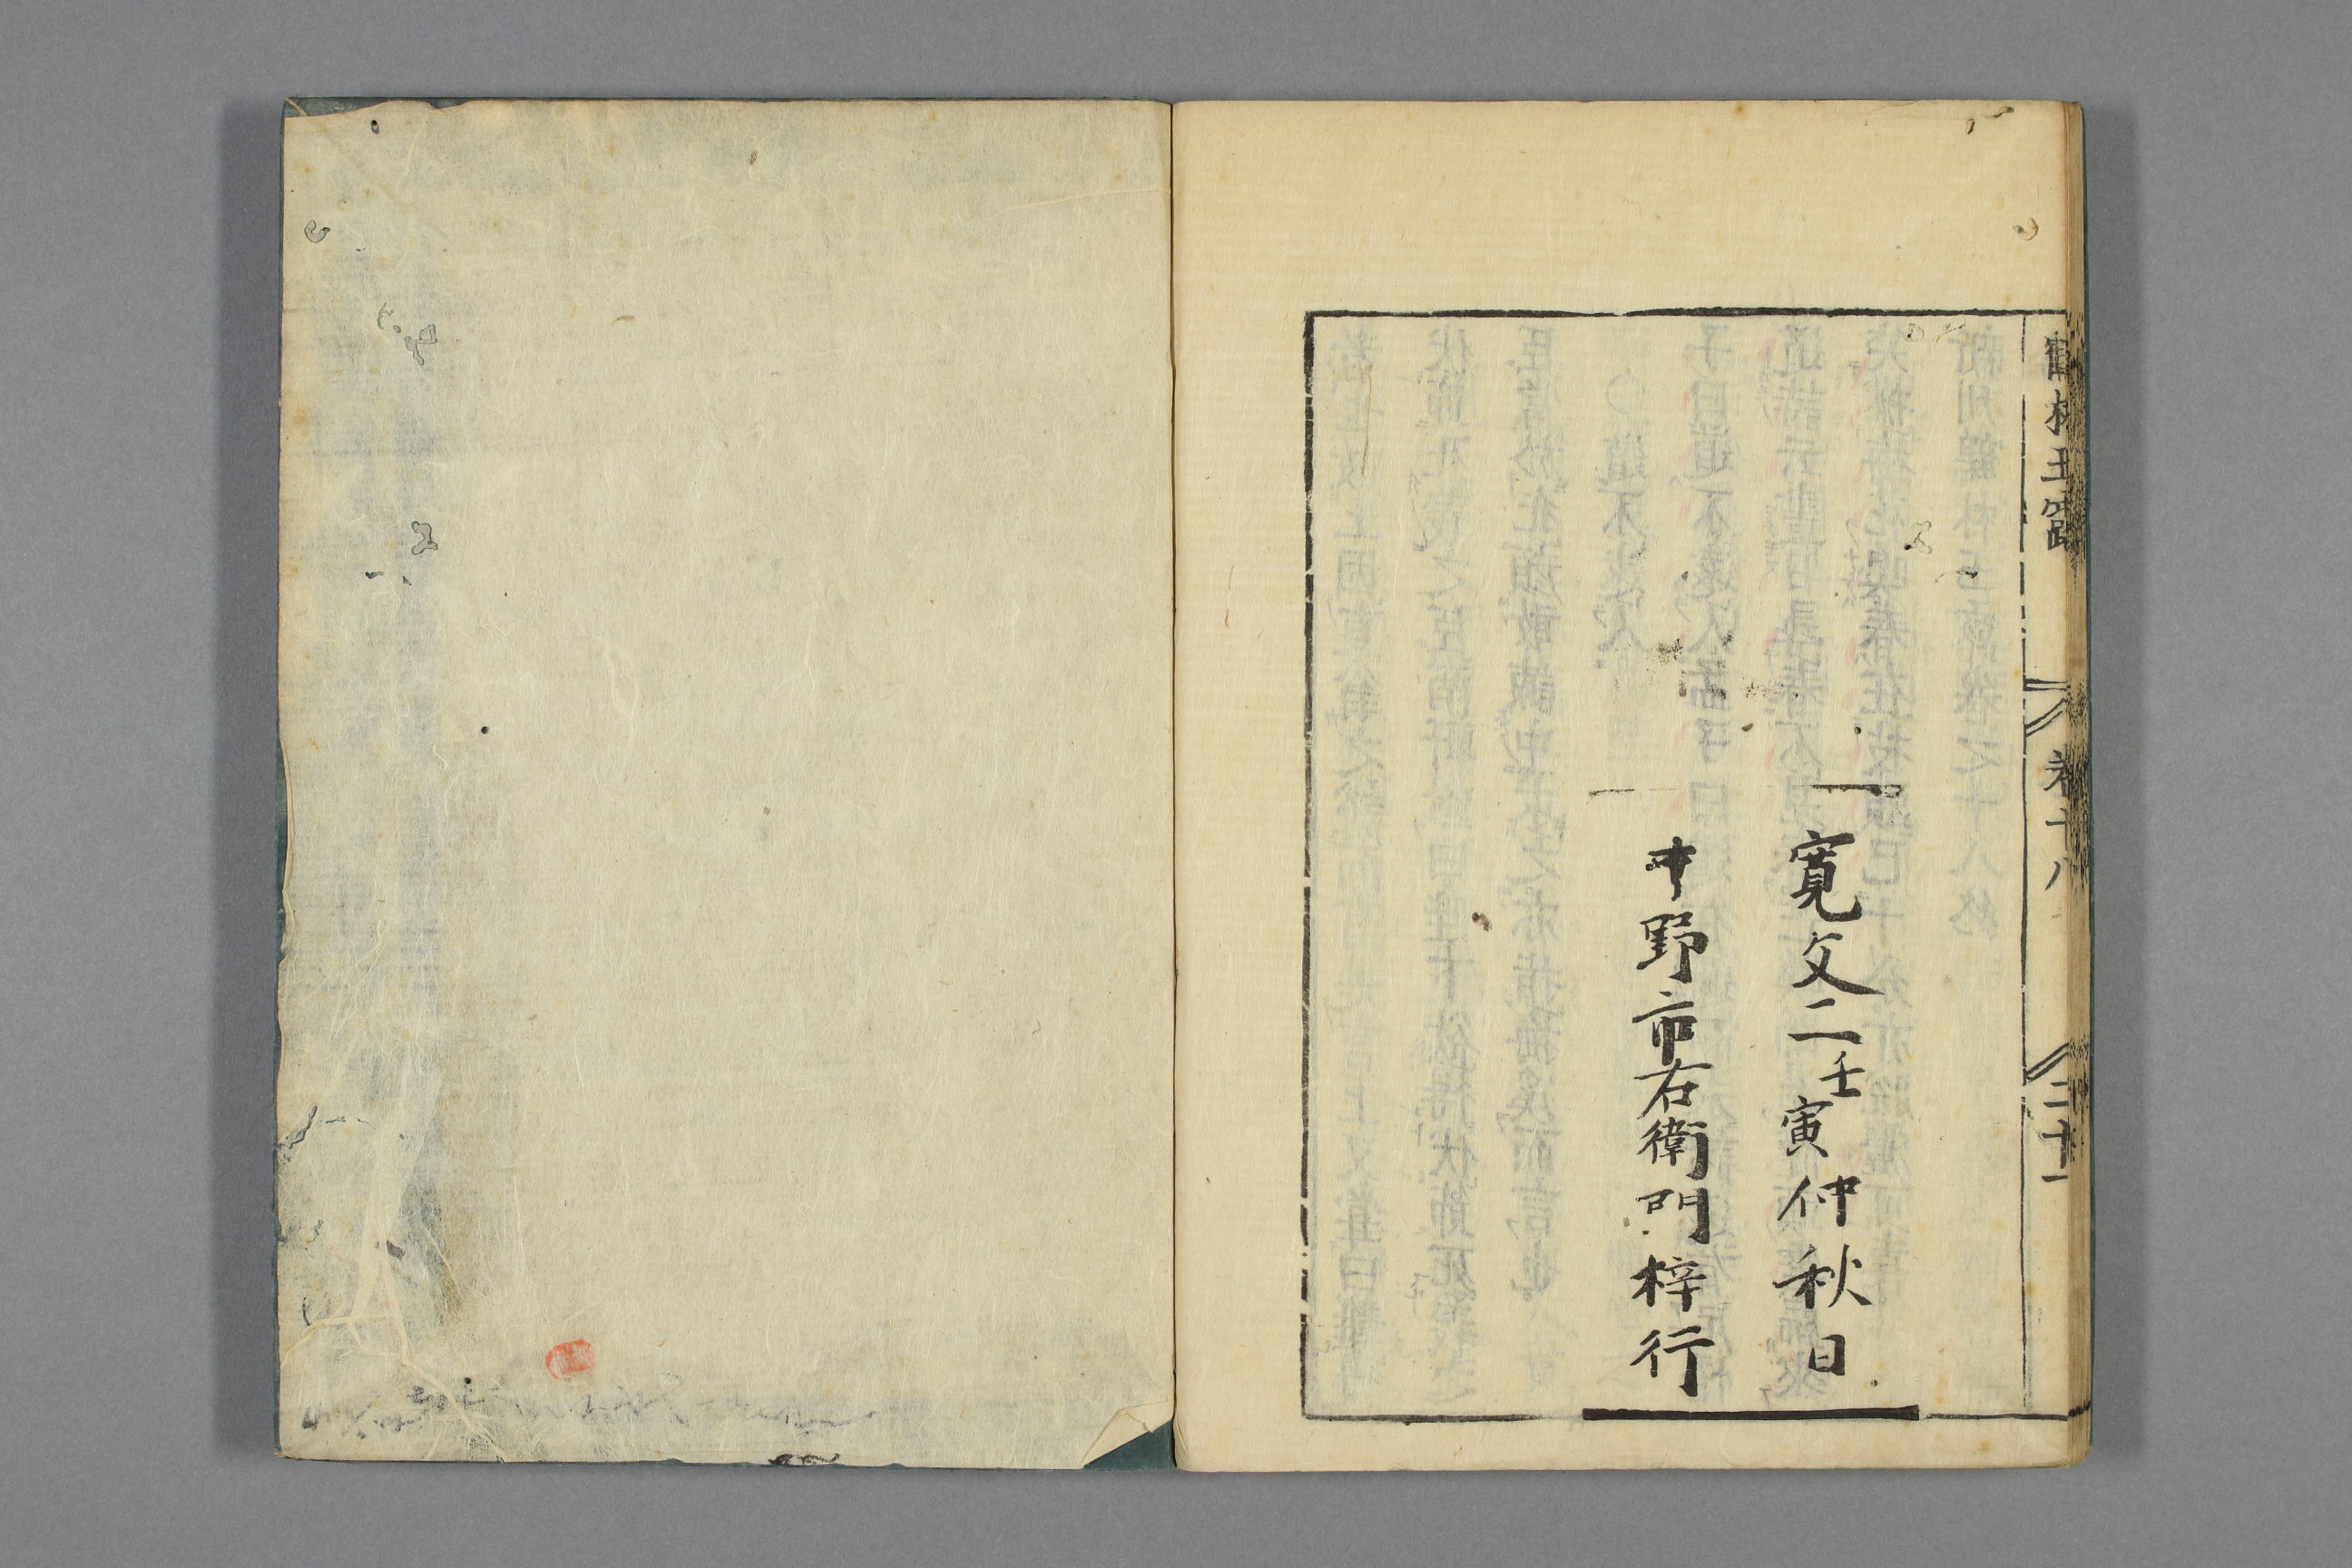 寛文二壬寅仲秋日
中野市右衛門梓行
鶴林玉露
卷十八
二十一